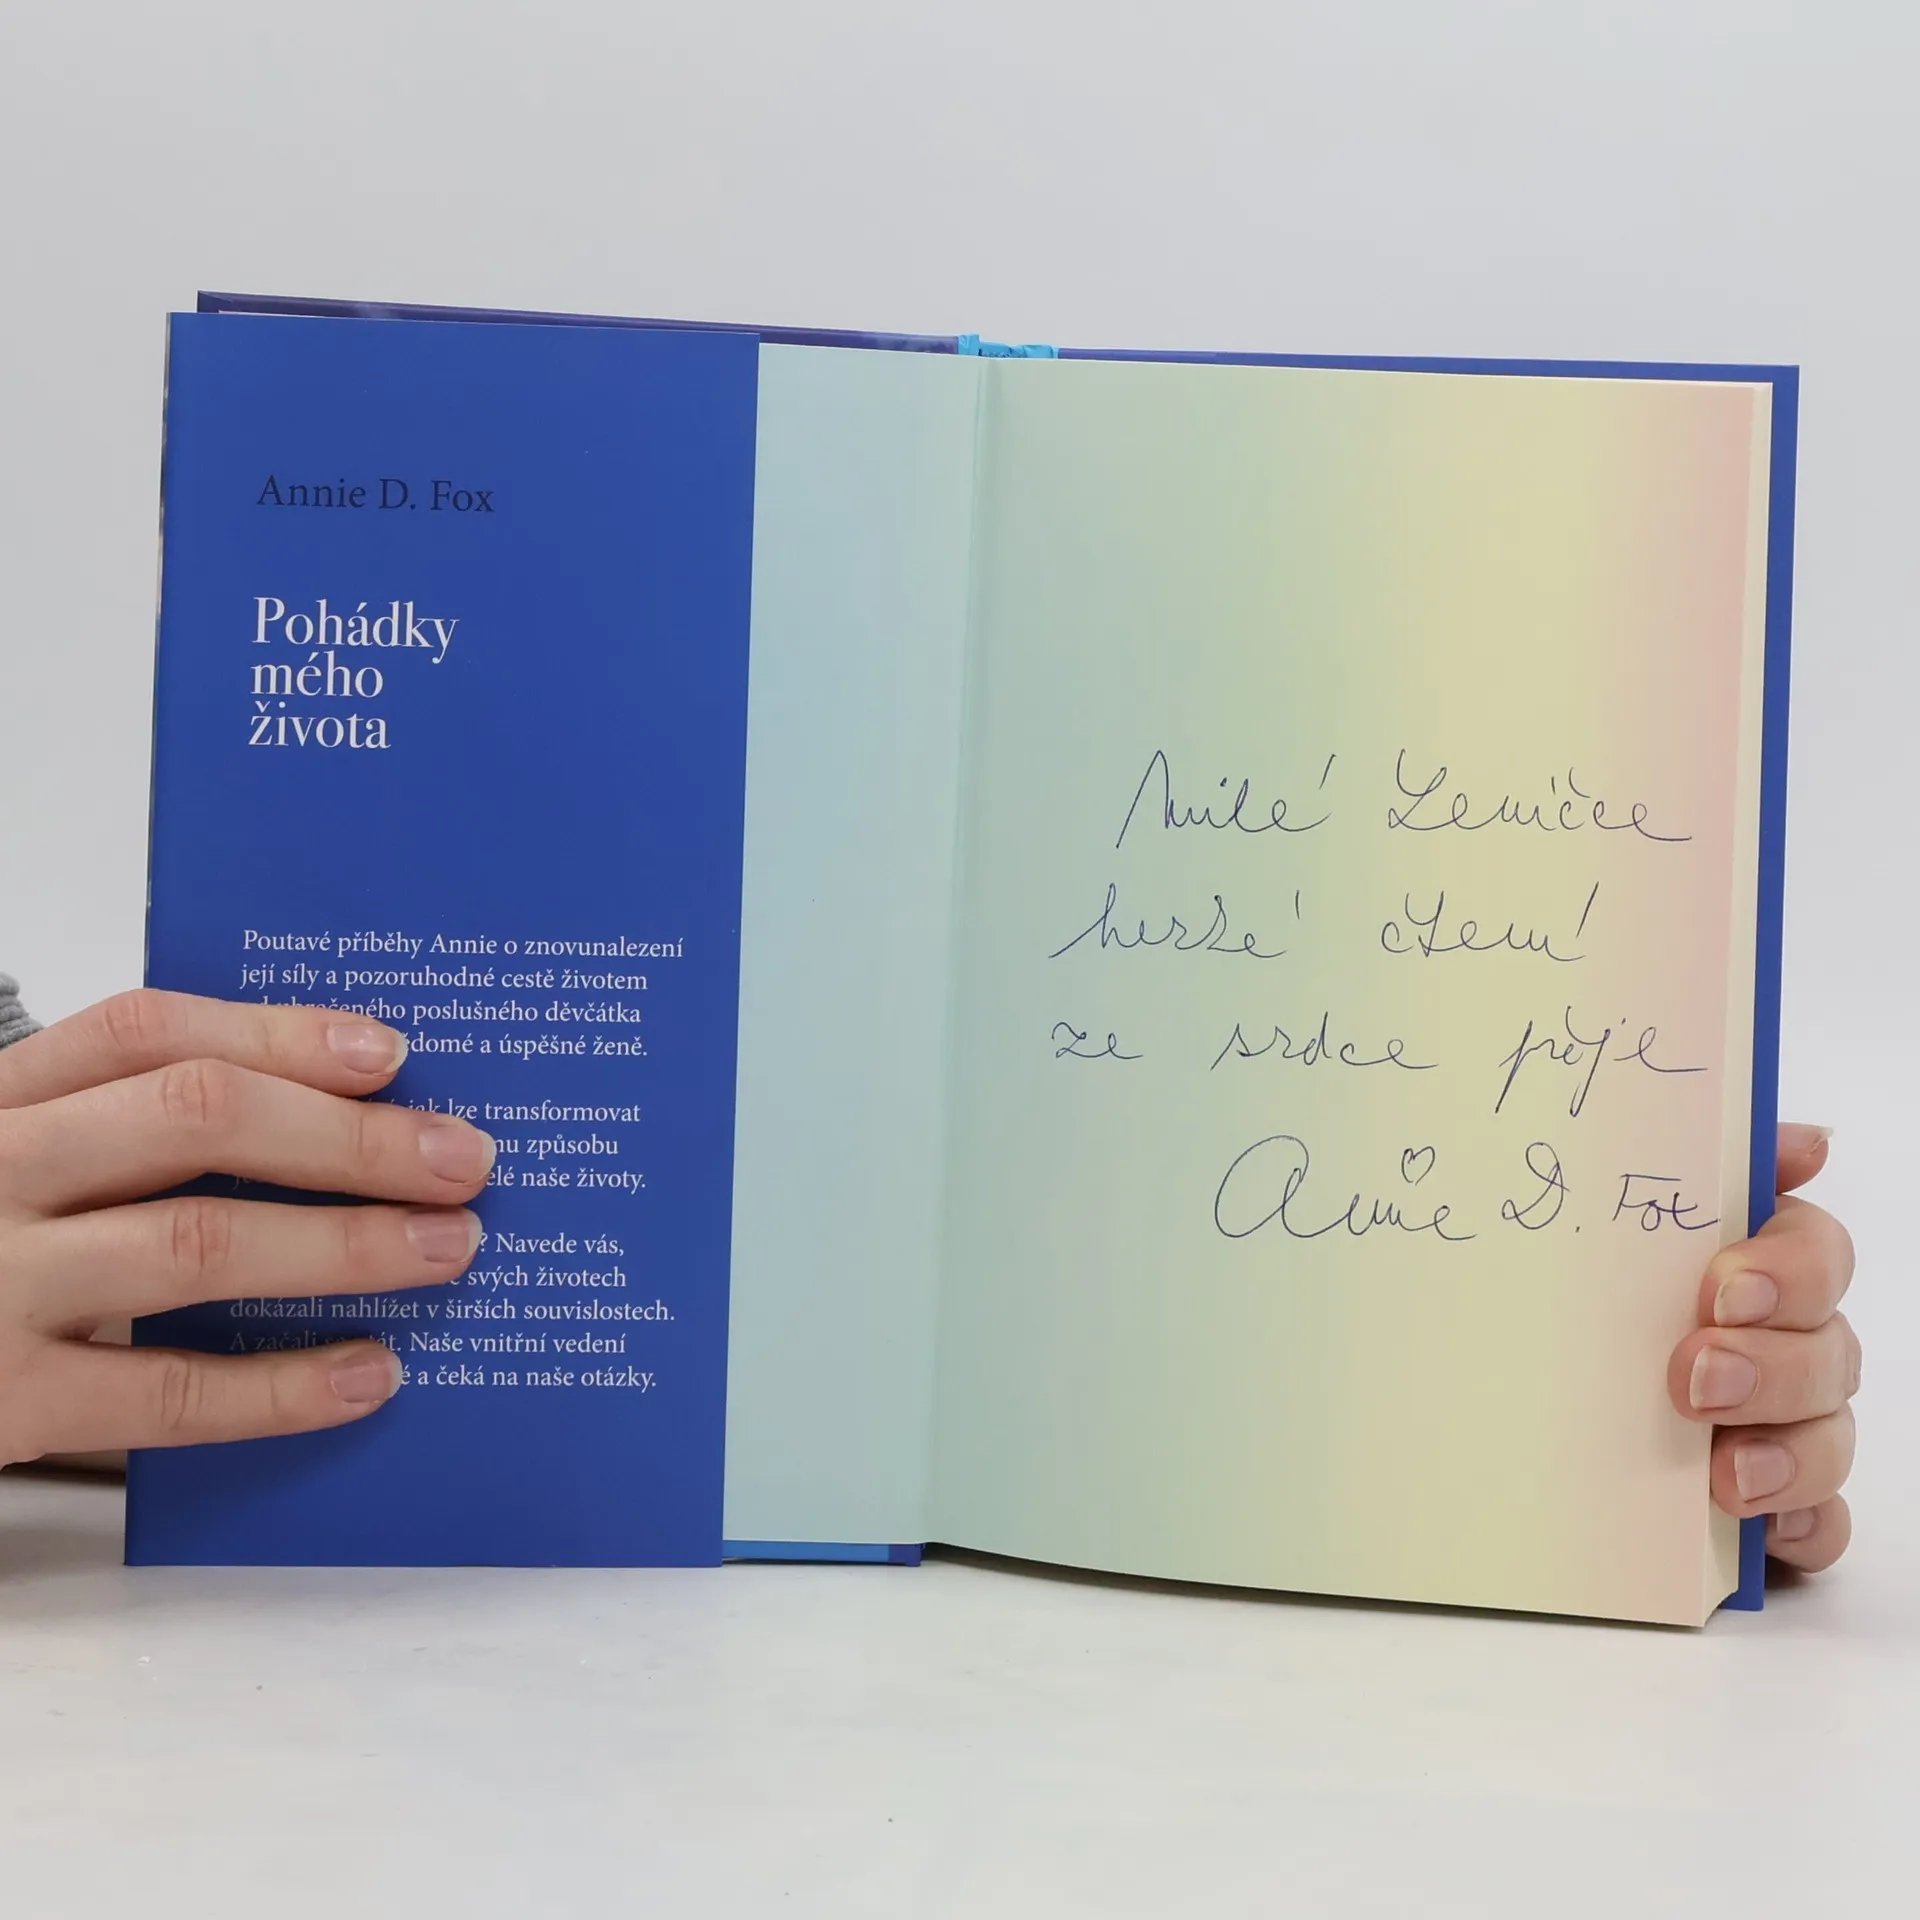 Annie D. Fox
Pohádky
mého
života
Poutavé příběhy Annie o znovunalezení
její síly a pozoruhodné cestě životem
poslušného děvčátka
a úspěšné ženě.
jak lze transformovat
způsobu
naše životy.
? Navede vás,
svých životech
dokázali nahlížet v širších souvislostech.
A začali Naše vnitřní vedení
a čeká na naše otázky.
Milé Leničce
hezké čtení
ze srdce přeje
Annie D. Fox